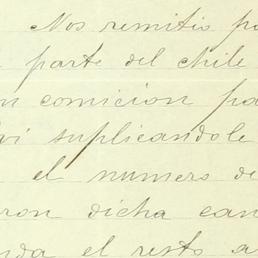 Nos remitio
parte del chile
comicion
suplicandole
el numero de
dicha
el resto a